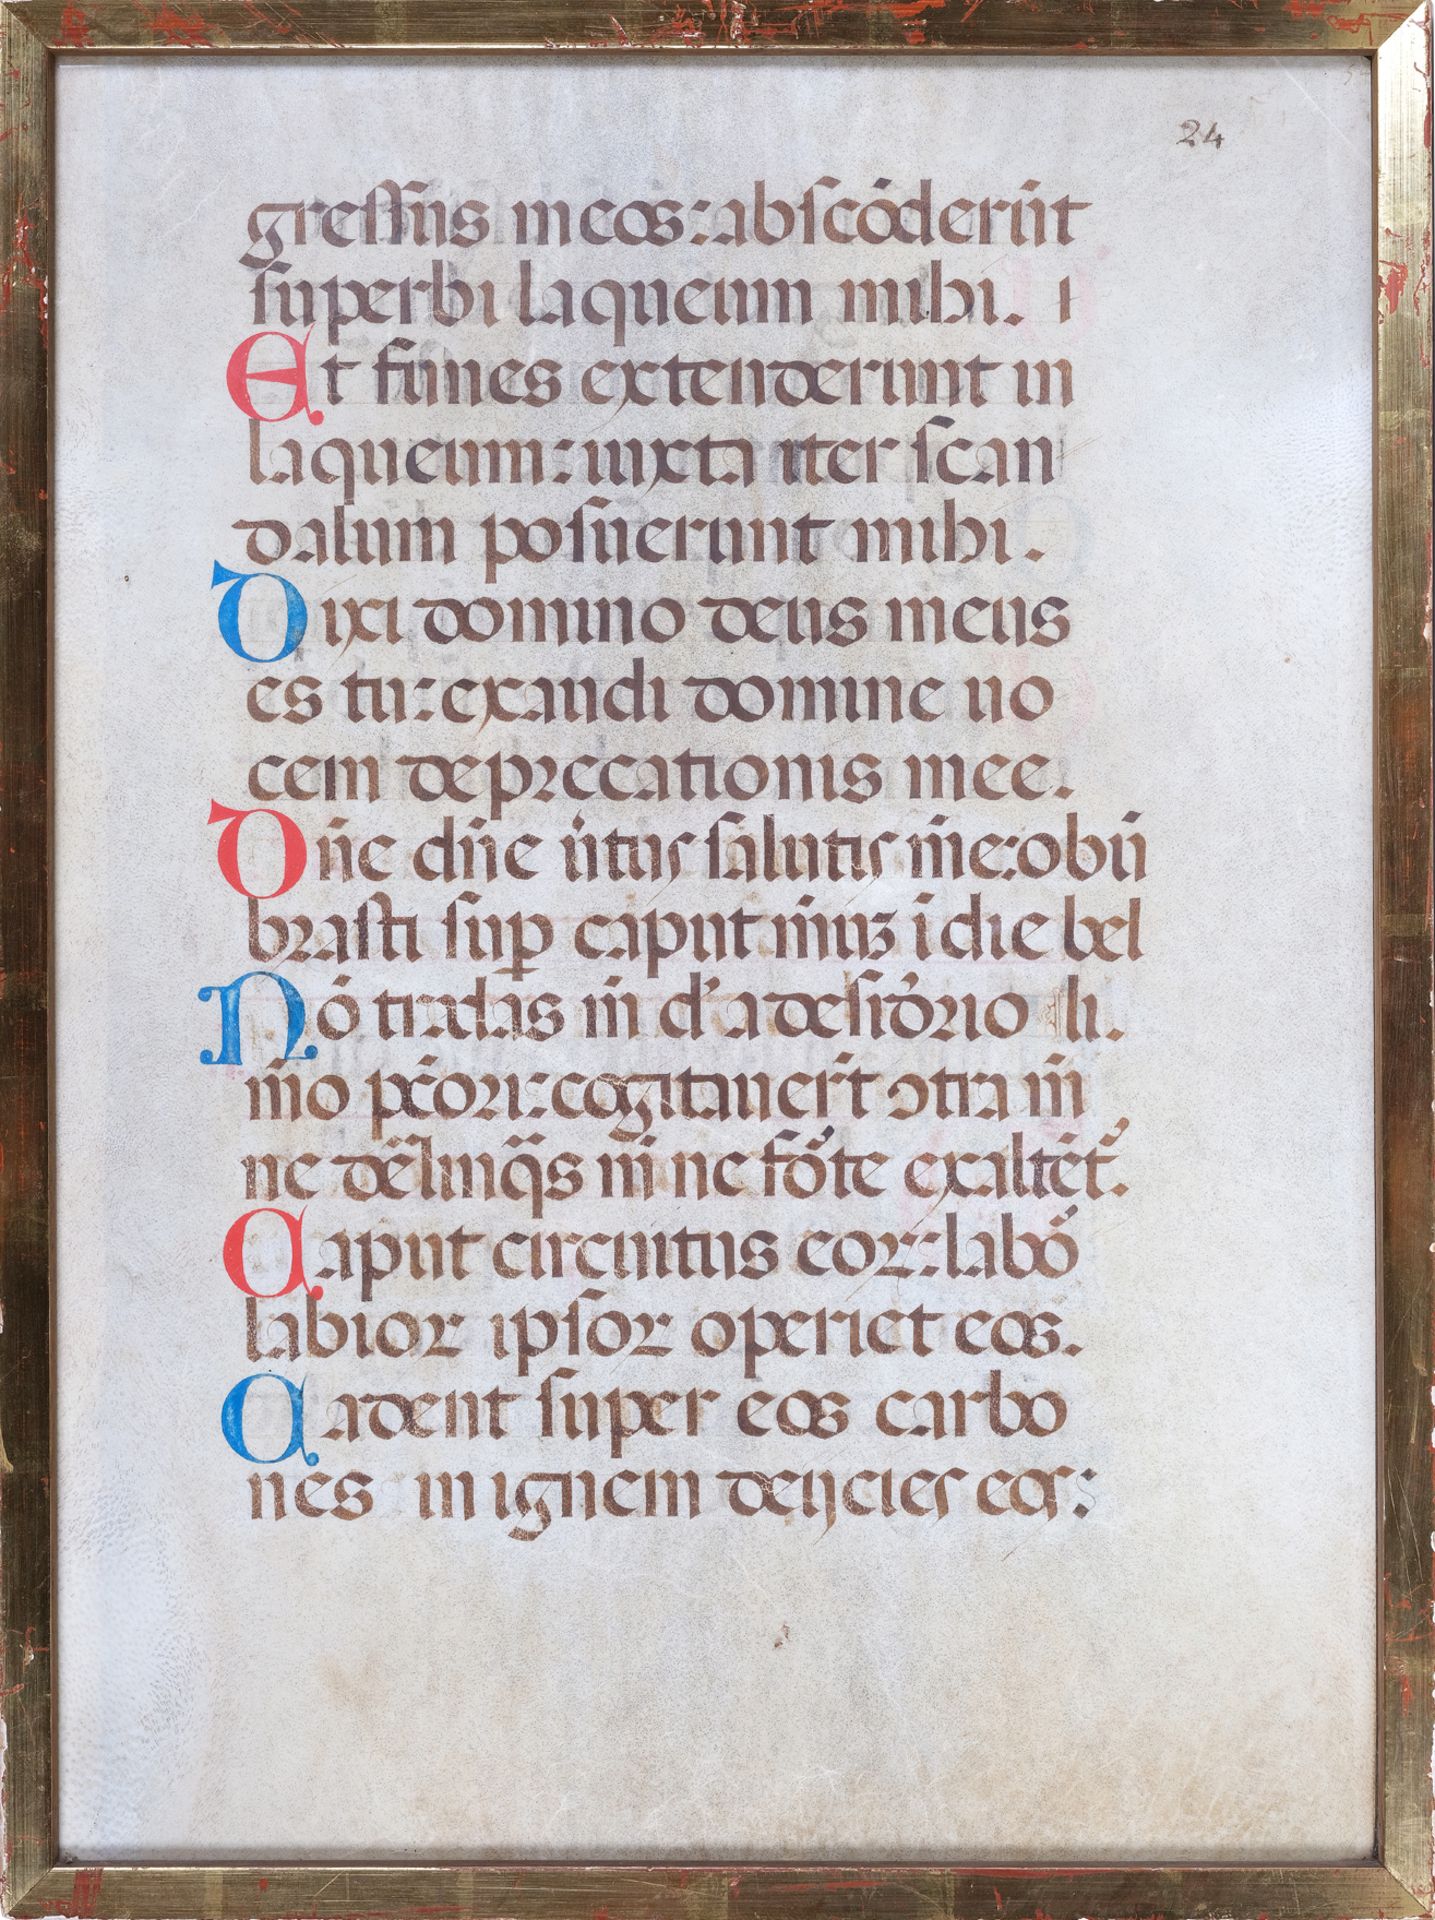 24
gressus meos: abscōderūt
superbi laqueum mihi.
Et funes extenderunt in
laqueum: iuxta iter scan
dalum posuerunt mihi.
Dixi domino deus meus
es tu: exaudi domine uo
cem deprecationis mee.
Dn̄e dn̄e ūtus salutis m̄e: obū
brasti suꝑ caput m̄uʒ ī die bel
Nō tradas m̄ d' a desidōrio li.
m̄o pc̄ōri: cogitauer̄t ↄtra m̄
ne dēlinq̄s m̄ ne fōte exaltēt.
Caput circuitus eoꝝ: labō
labioꝝ ipsoꝝ operiet eos.
Cadent super eos carbo
nes in ignem deijcies eos: